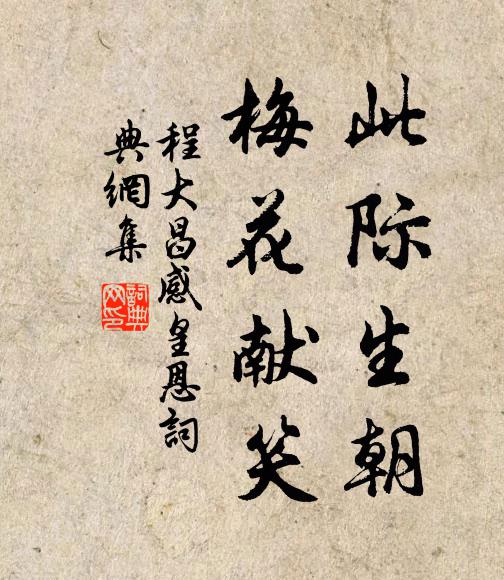 此际生朝
梅花献笑
程大昌感皇恩詞
典網集
詞典网印